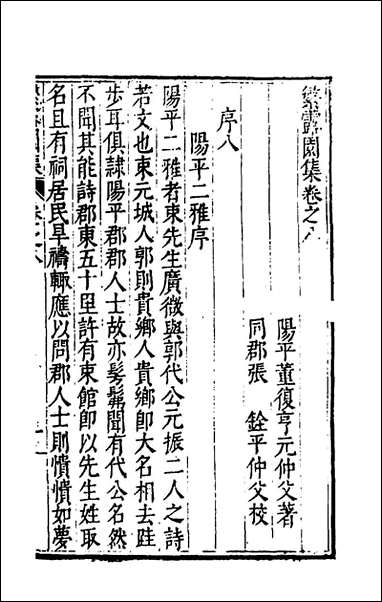 繁露園集卷之八
陽平董復亨元仲父著
同郡張　銓平仲父校
序八
陽平二雅序
陽平二雅者束先生廣微與郭代公元振二人之詩
若文也束元城人郭則貴鄉人貴鄉即大名相去跬
步耳俱隸陽平郡郡人士故亦髣髴聞有代公名然
不聞其能詩郡東五十里許有束館即以先生姓取
名且有祠居民旱禱輙應以問郡人士則憒憒如夢